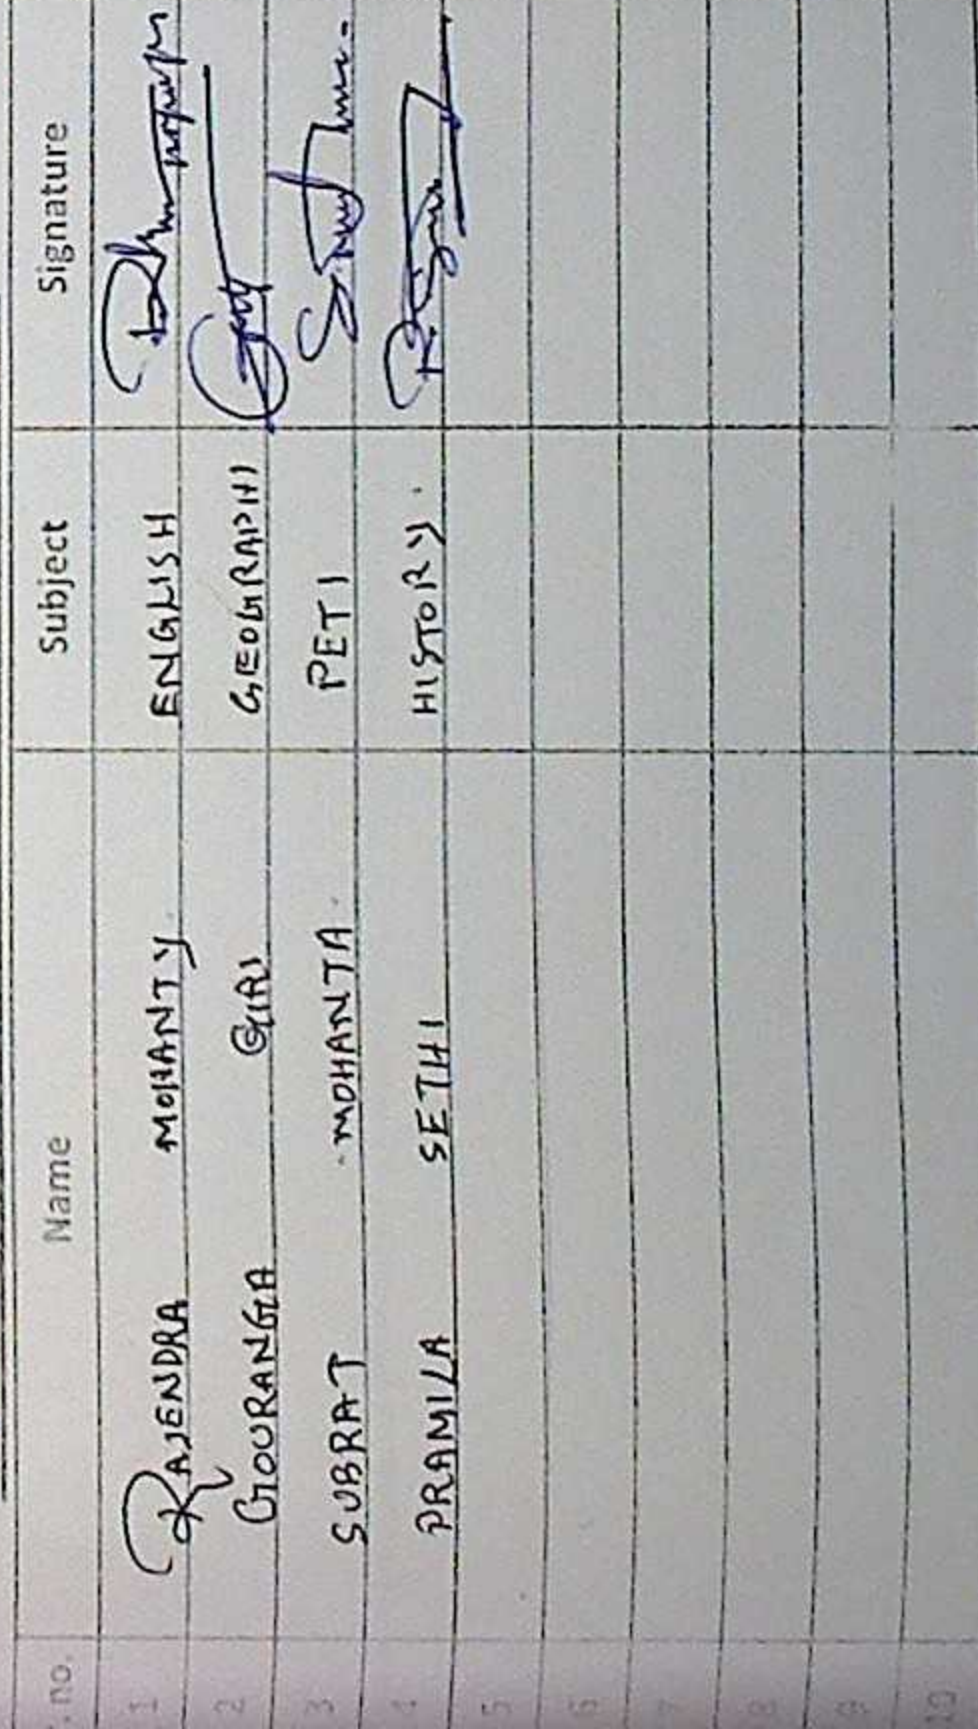 . no. Name Subject Signature
1 RAJENDRA MOHANTY. ENGLISH
2 GOURANGA GIRI GEOGRAPHI
3 SUBRAT MOHANTA. PETI
4 PRAMILA SETHI HISTORY.
5
6
7
8
9
10